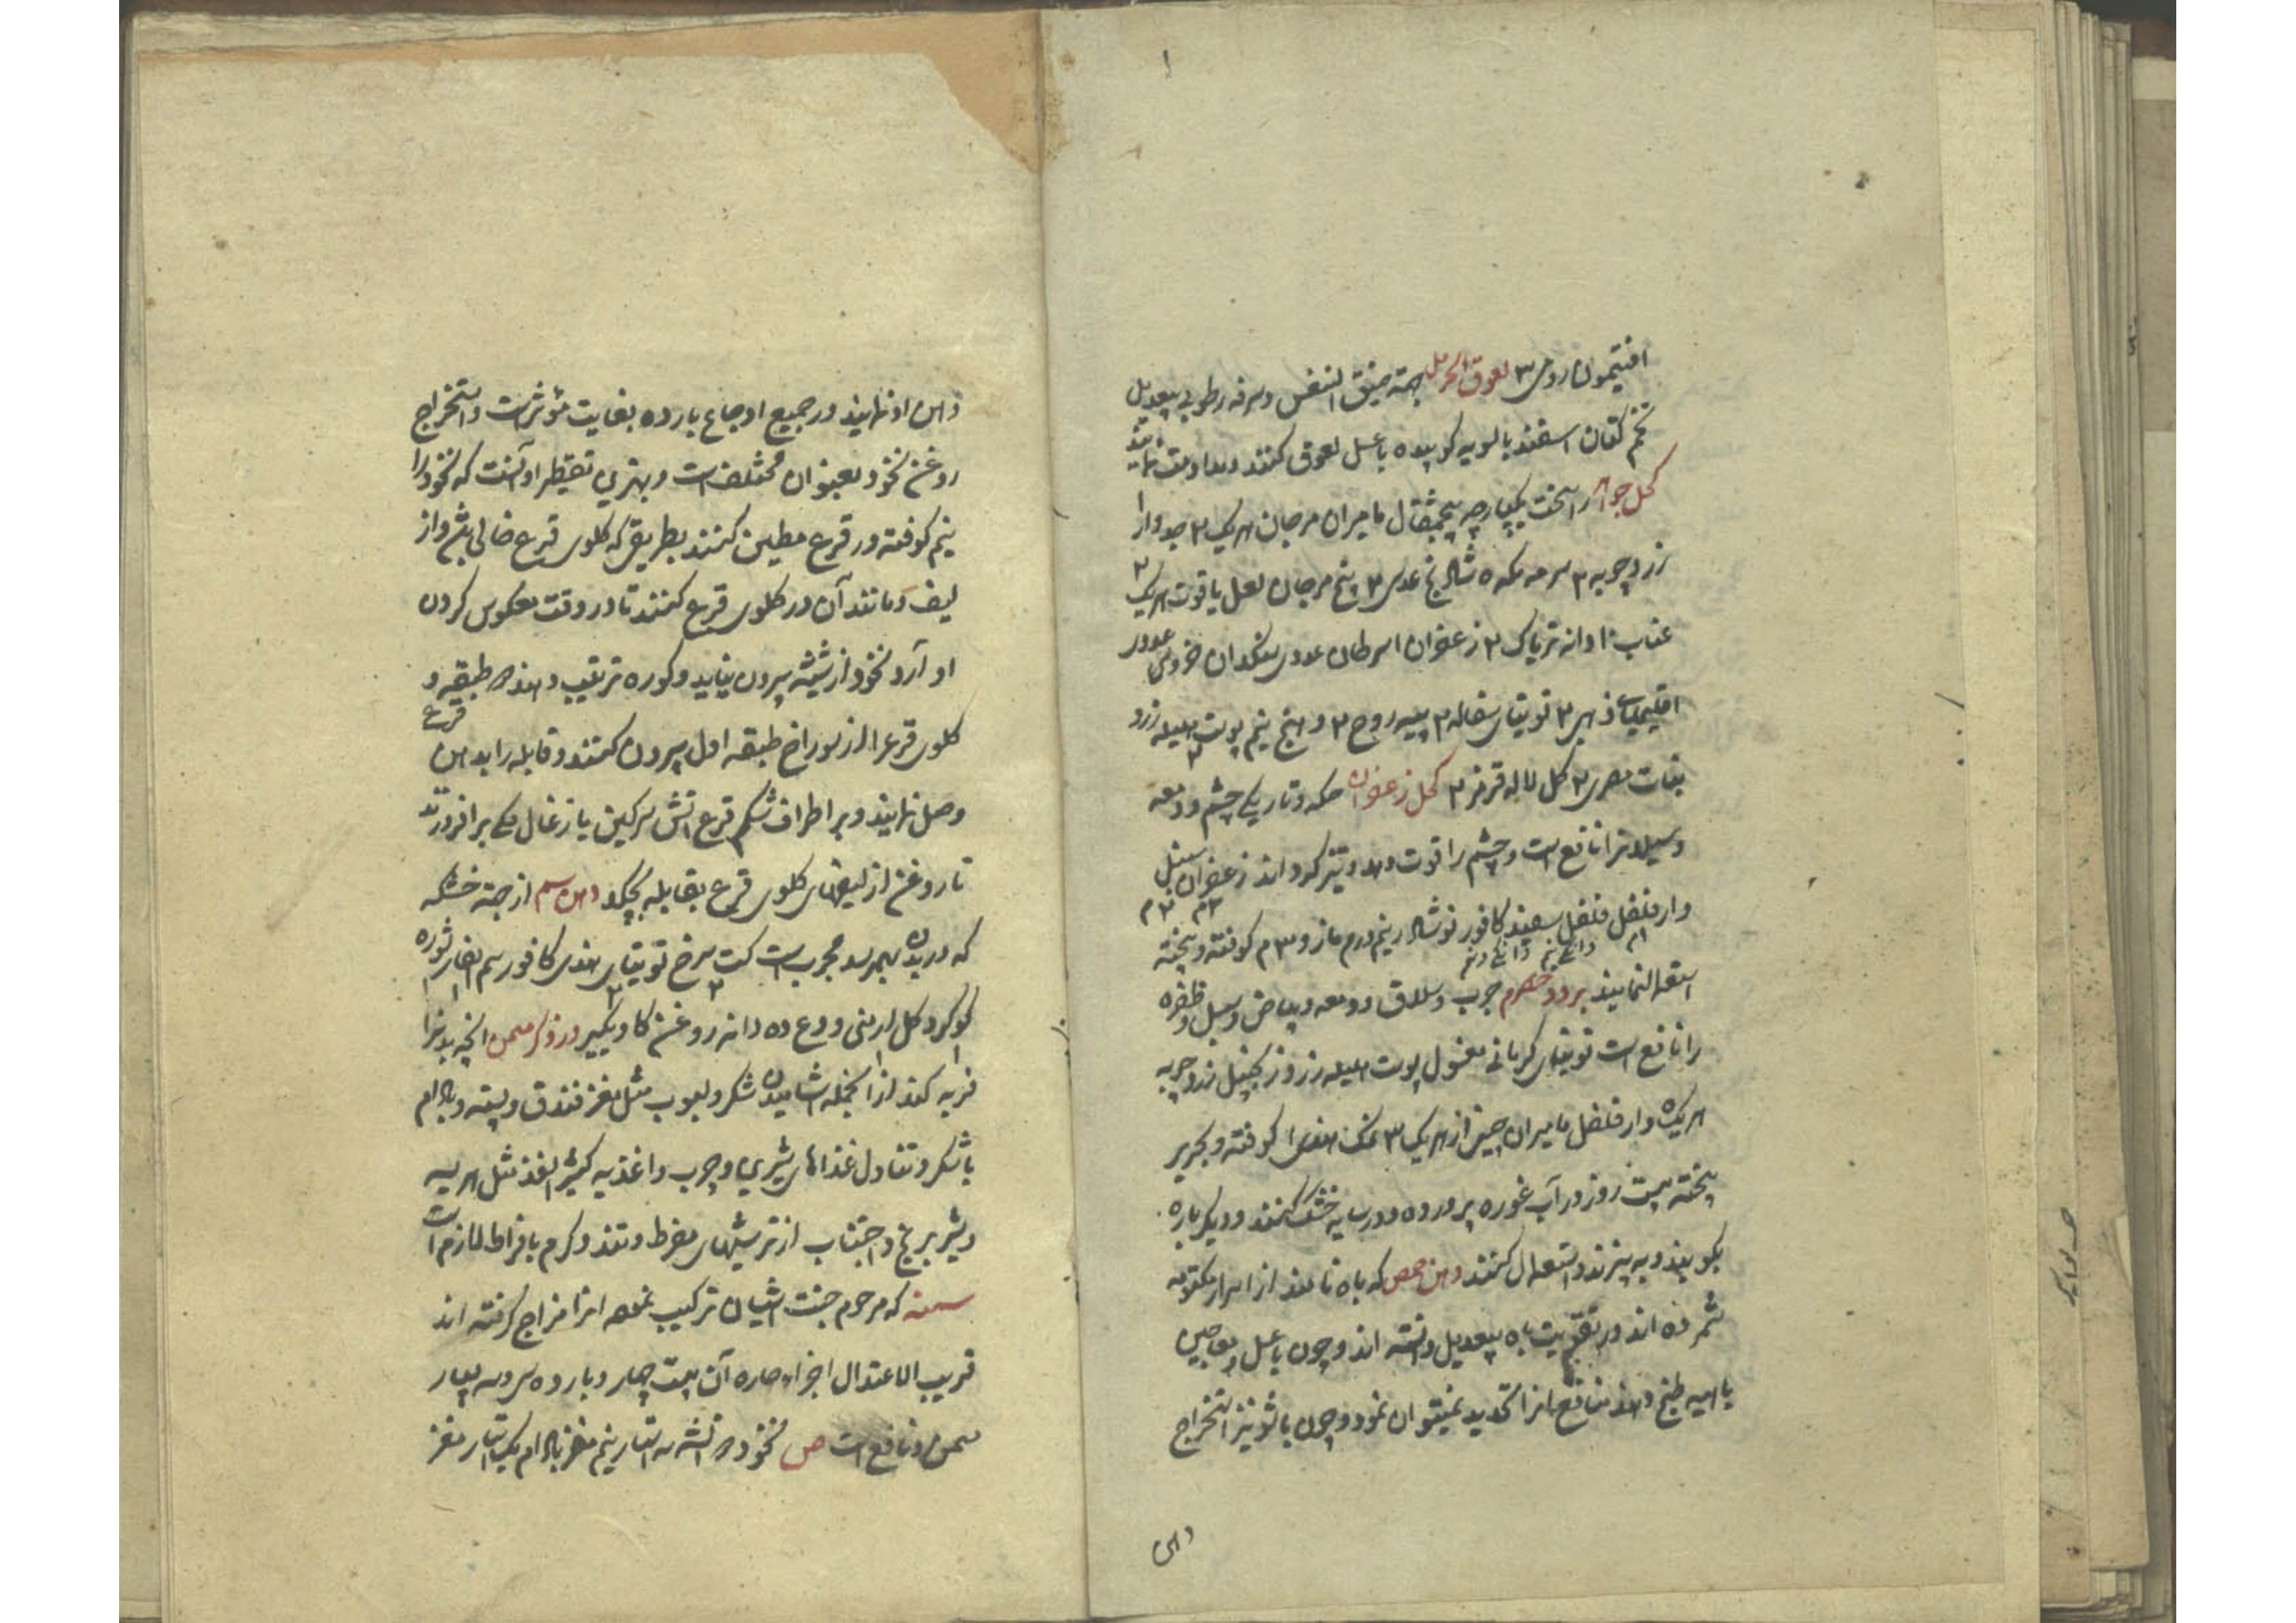 ۱
افتیمون رومی ۳ لعوق الحرمل جهته ضیق النفس و سرفه رطوبی بیعدیل
تخم کتان اسفند بالسویه کوبیده با عسل لعوق کنند و مداومت نمایند
کحل جواهر راسخت یکپارچه پنجمثقال مامیران مرجان هریک ۲ جدوار ۱
زردچوبه ۳ سرمه مکه ۵ شادنج عدسی ۳ پنج مرجان لعل یاقوت هریک ۲
عناب ۱۰ دانه تریاک ۲ زعفران ۱ سرطان سنگدان خروس
اقلیمیای ذهبی ۲ توتیای سفاله ۳ روح ۲ نیم پوست هلیله زرد
نبات مصری ۲ کل لاله قرمز ۲ کحل زعفران حکه و تاریکی چشم و دمعه
و سیلانرا نافع است و چشم را قوت دهد و تیز کرداند زعفران سنبل
۲م ۲م
دارفلفل فلفل سفید کافور نوشادر نیم درم مازو ۳م کوفته و بیخته
۱م دانک نیم دانک و نیم
استعمالنمایند برود حصرم جرب و سلاق و دمعه و بیاض و سبل و ظفره
را نافع است توتیای کرمانی مغسول پوست هلیله زرد زنجبیل زردچوبه
هریک ۵ دارفلفل مامیران چینی از هریک ۳ نمک هندی ۱ کوفته و بحریر
بیخته بیست روز در آب غوره پرورده و در سایه خشک کنند و دیکر باره
بکوبند و به بیزند و استعمال کنند دهن حمص که باه نامند از اسرار مکتومه
شمرده اند و در تقویت باه بیعدیل دانسته اند و چون با عسل و معاجین
باهیه طبخ دهند منافع انرا تحدید نمیتوان نمود و چون با شونیز استخراج
دهن
دهن او نمایند در جمیع اوجاع بارده بغایت مؤثر است و استخراج
روغن نخود بعنوان مختلف است و بهترین تقطیر او آنست که نخود را
نیم کوفته در قرع مطین کنند بطریقی که کلوی قرع خالی باشد و از
لیف و مانند آن در کلوی قرع کنند تا در وقت معکوس کردن
او آرد نخود از شیشه بیرون نیاید و کوره ترتیب دهند دو طبقه و
کلوی قرع را از سوراخ طبقه اول بیرون کنند و قابله را بدهن قرع
وصل نمایند و بر اطراف شکم قرع اتش سرکین یا زغال کمی برافروزند
تا روغن از لیفهای کلوی قرع بقابله بچکد دهن سم از جهته خشکه
که در بدن بهمرسد مجرب است کت سرخ توتیای هندی کافور سم الفار شوره
۲ ۲ ۱ ۱ ۱
کوکرد کل ارمنی ودع ده دانه روغن کاو یکسیر در ذکر مسمن انچه بدنرا
۱ ۱
فربه کند از انجمله اشامیدن شکر و لبوب مثل مغز فندق و پسته و بادام
با شکر و تناول غذاهای شیرین و چرب و اغذیه کثیر الغذا مثل هریسه
و شیر برنج و اجتناب از ترشیهای مفرط و تند و کرم بافراط لازم است
سمنه که مرحوم جنت اشیان ترکیب نموده انرا مزاج کرفته اند
قریب الاعتدال اجزاء حاره آن بیست چهار و بارده سی و سه بسیار
مسمن و نافع است ص نخود دو اتشه سه استار نیم مغز بادام یک استار مغز